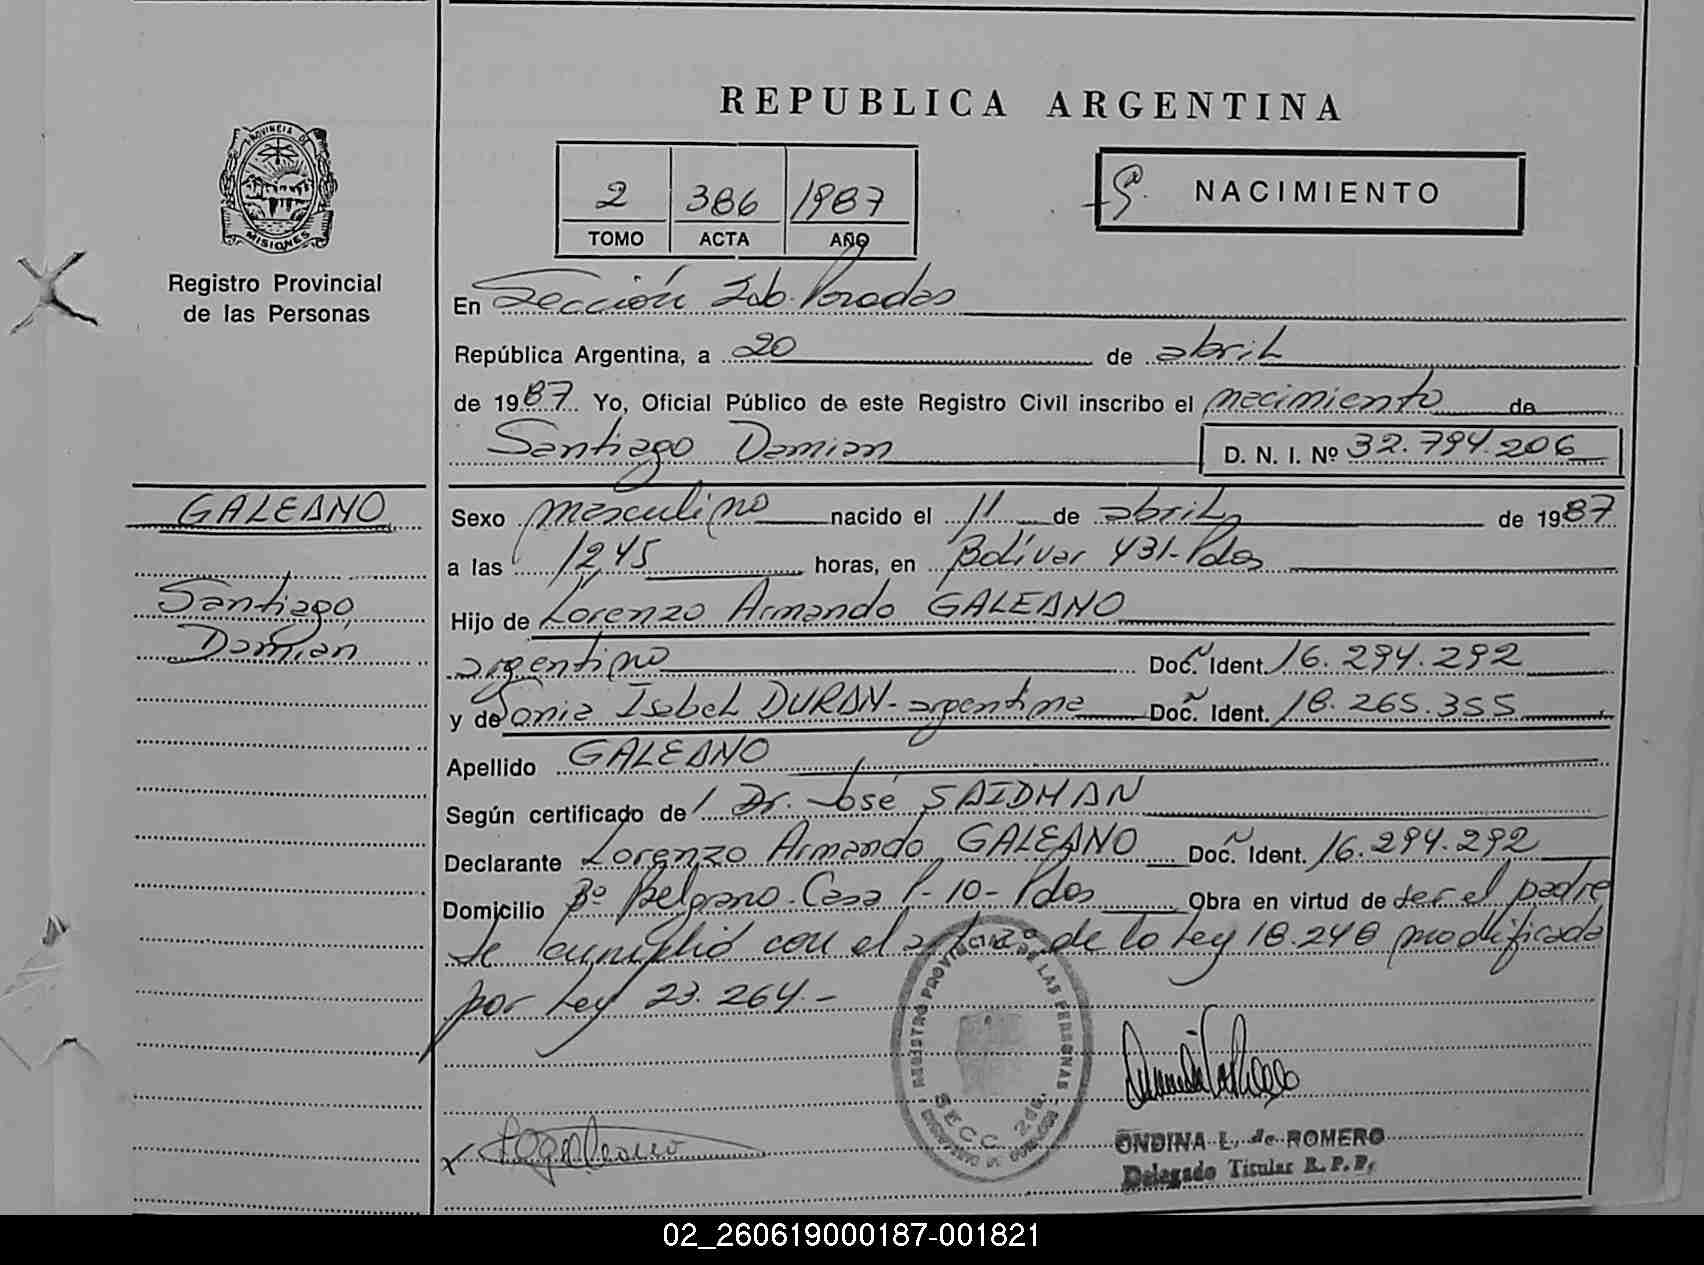 REPUBLICA ARGENTINA
PROVINCIA DE
MISIONES
Registro Provincial
de las Personas
2 386 1987
TOMO ACTA AÑO
NACIMIENTO
En Sección 2db. Posadas
República Argentina, a 20 de abril
de 1987. Yo, Oficial Público de este Registro Civil inscribo el nacimiento de
Santiago Damian D. N. I. Nº 32.794.206
GALEANO
Santiago
Damian
Sexo masculino nacido el 11 de abril de 1987
a las 1245 horas, en Bolívar 431-Pdas
Hijo de Lorenzo Armando GALEANO
argentino Doc. Ident. 16.294.292
y de Sonia Isabel DURAN-argentina Doc. Ident. 18.265.355
Apellido GALEANO
Según certificado de Dr. José SAIDMAN
Declarante Lorenzo Armando GALEANO Doc. Ident. 16.294.292
Domicilio Bº Belgrano. Casa P-10-Pdas Obra en virtud de ser el padre
Se cumplió con el art. 2º de la Ley 18.248 modificada
por Ley 23.264.-
REGISTRO PROVINCIAL DE LAS PERSONAS
SECC. 2da.
ONDINA L. de ROMERO
Delegado Titular R. P. P.
02_260619000187-001821